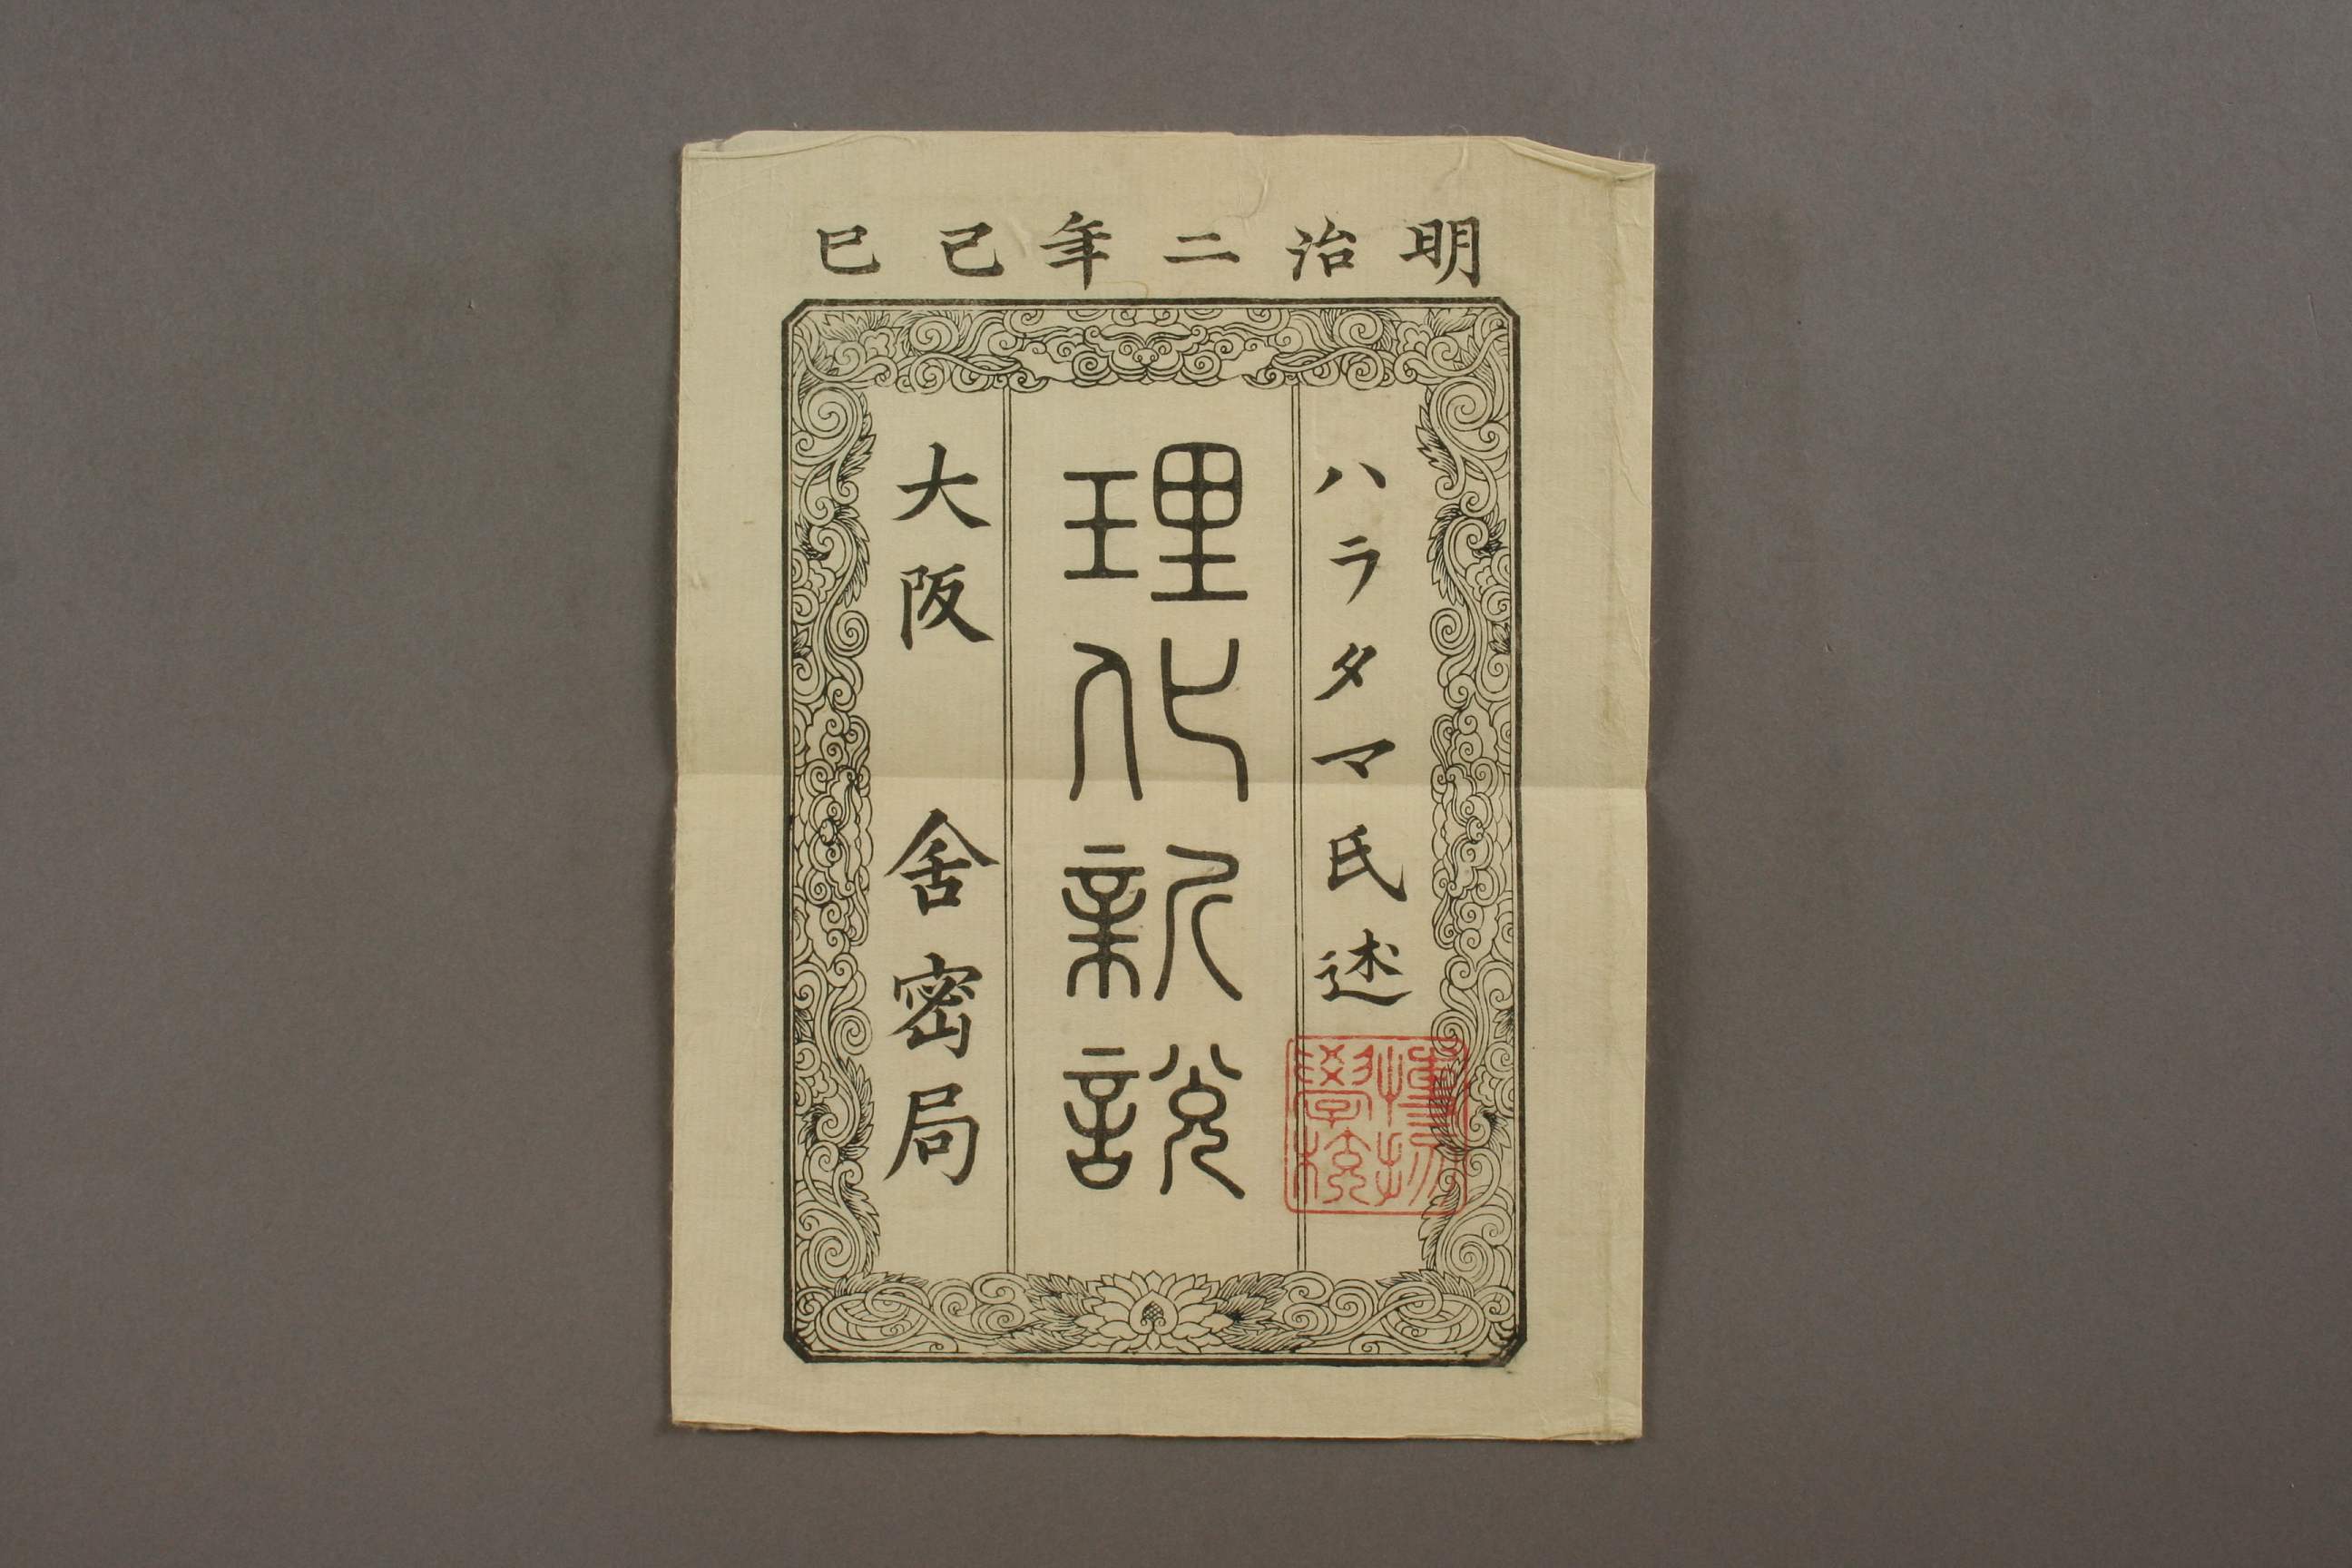 明治二年己巳
ハラタマ氏述
理化新說
大阪 舍密局
學校